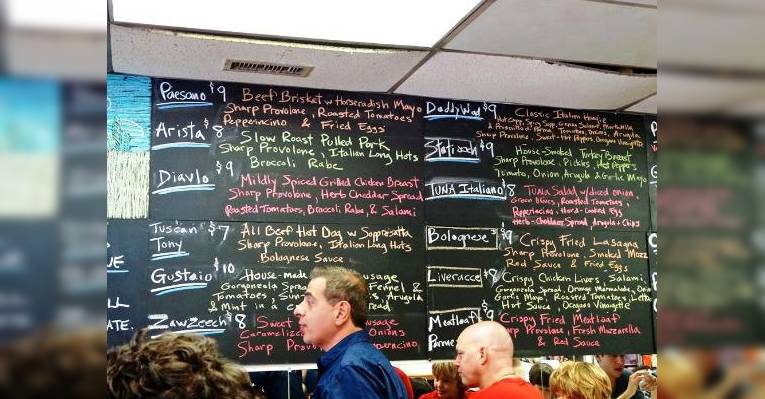 Paesano $9 Beef Brisket w Horseradish Mayo
Sharp Provolone, Roasted Tomatoes
Pepperincino & Fried Eggs
Arista $8 Slow Roast Pulled Pork
Sharp Provolone, Italian Long Hots
Broccoli Rabe
Diavlo $9 Mildly Spiced Grilled Chicken Breast
Sharp Provolone, Herb Cheddar Spread
Roasted Tomatoes, Broccoli Rabe, & Salami
Tuscan Tony $7 All Beef Hot Dog w Sopressatta
Sharp Provolone, Italian Long Hots
Bolognese Sauce
Gustaio $10 House-made
Gorgonzola Spread Fennel &
Tomatoes, Arugula
& Mint in a
Zawzeech $8 Sweet
Caramelized Onions
Sharp
Daddy Wad $9 Classic Italian Hoagie
Tomatoes, Onions, Arugula
Sharp Provolone, Sweet + Hot Peppers, Oregano Vinaigrette
$9 House-Smoked Turkey Breast
Sharp Provolone, Pickles, Hot Peppers
Tomato, Onion, Arugula & Garlic Mayo
Tuna Italiano $8 Tuna Salad w/ diced onion,
Green Olives, Roasted Tomatoes,
Pepperincino, Hard-Cooked Egg
Herb-Cheddar Spread, Arugula + Chips
Bolognese $9 Crispy Fried Lasagna
Sharp Provolone, Smoked Mozz
Red Sauce & Fried Eggs
Liveracce $8 Crispy Chicken Livers, Salami,
Gorgonzola Spread, Orange Marmalade,
Garlic Mayo, Roasted Tomatoes,
Hot Sauce Oregano Vinaigrette
Meatloaf $9 Crispy Fried Meatloaf
Sharp Provolone, Fresh Mozzarella
& Red Sauce